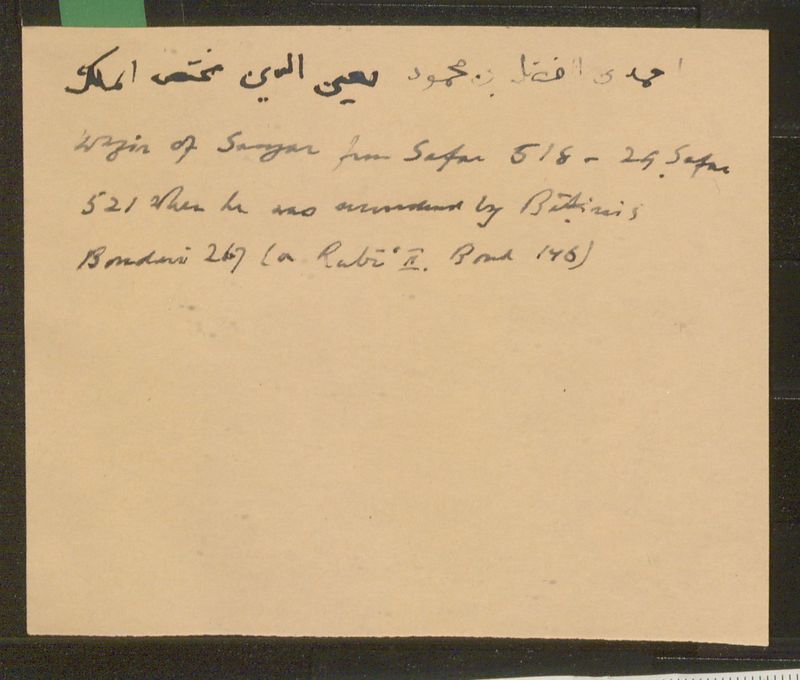 احمد بن افضل بن محمود معين الدين مختص الملك
Wazir of Sanjar from Safar 518 - 29 Safar
521 when he was wounded by Bāṭinis
Bondari 267 (or Rabīʿ II. Bond 146)